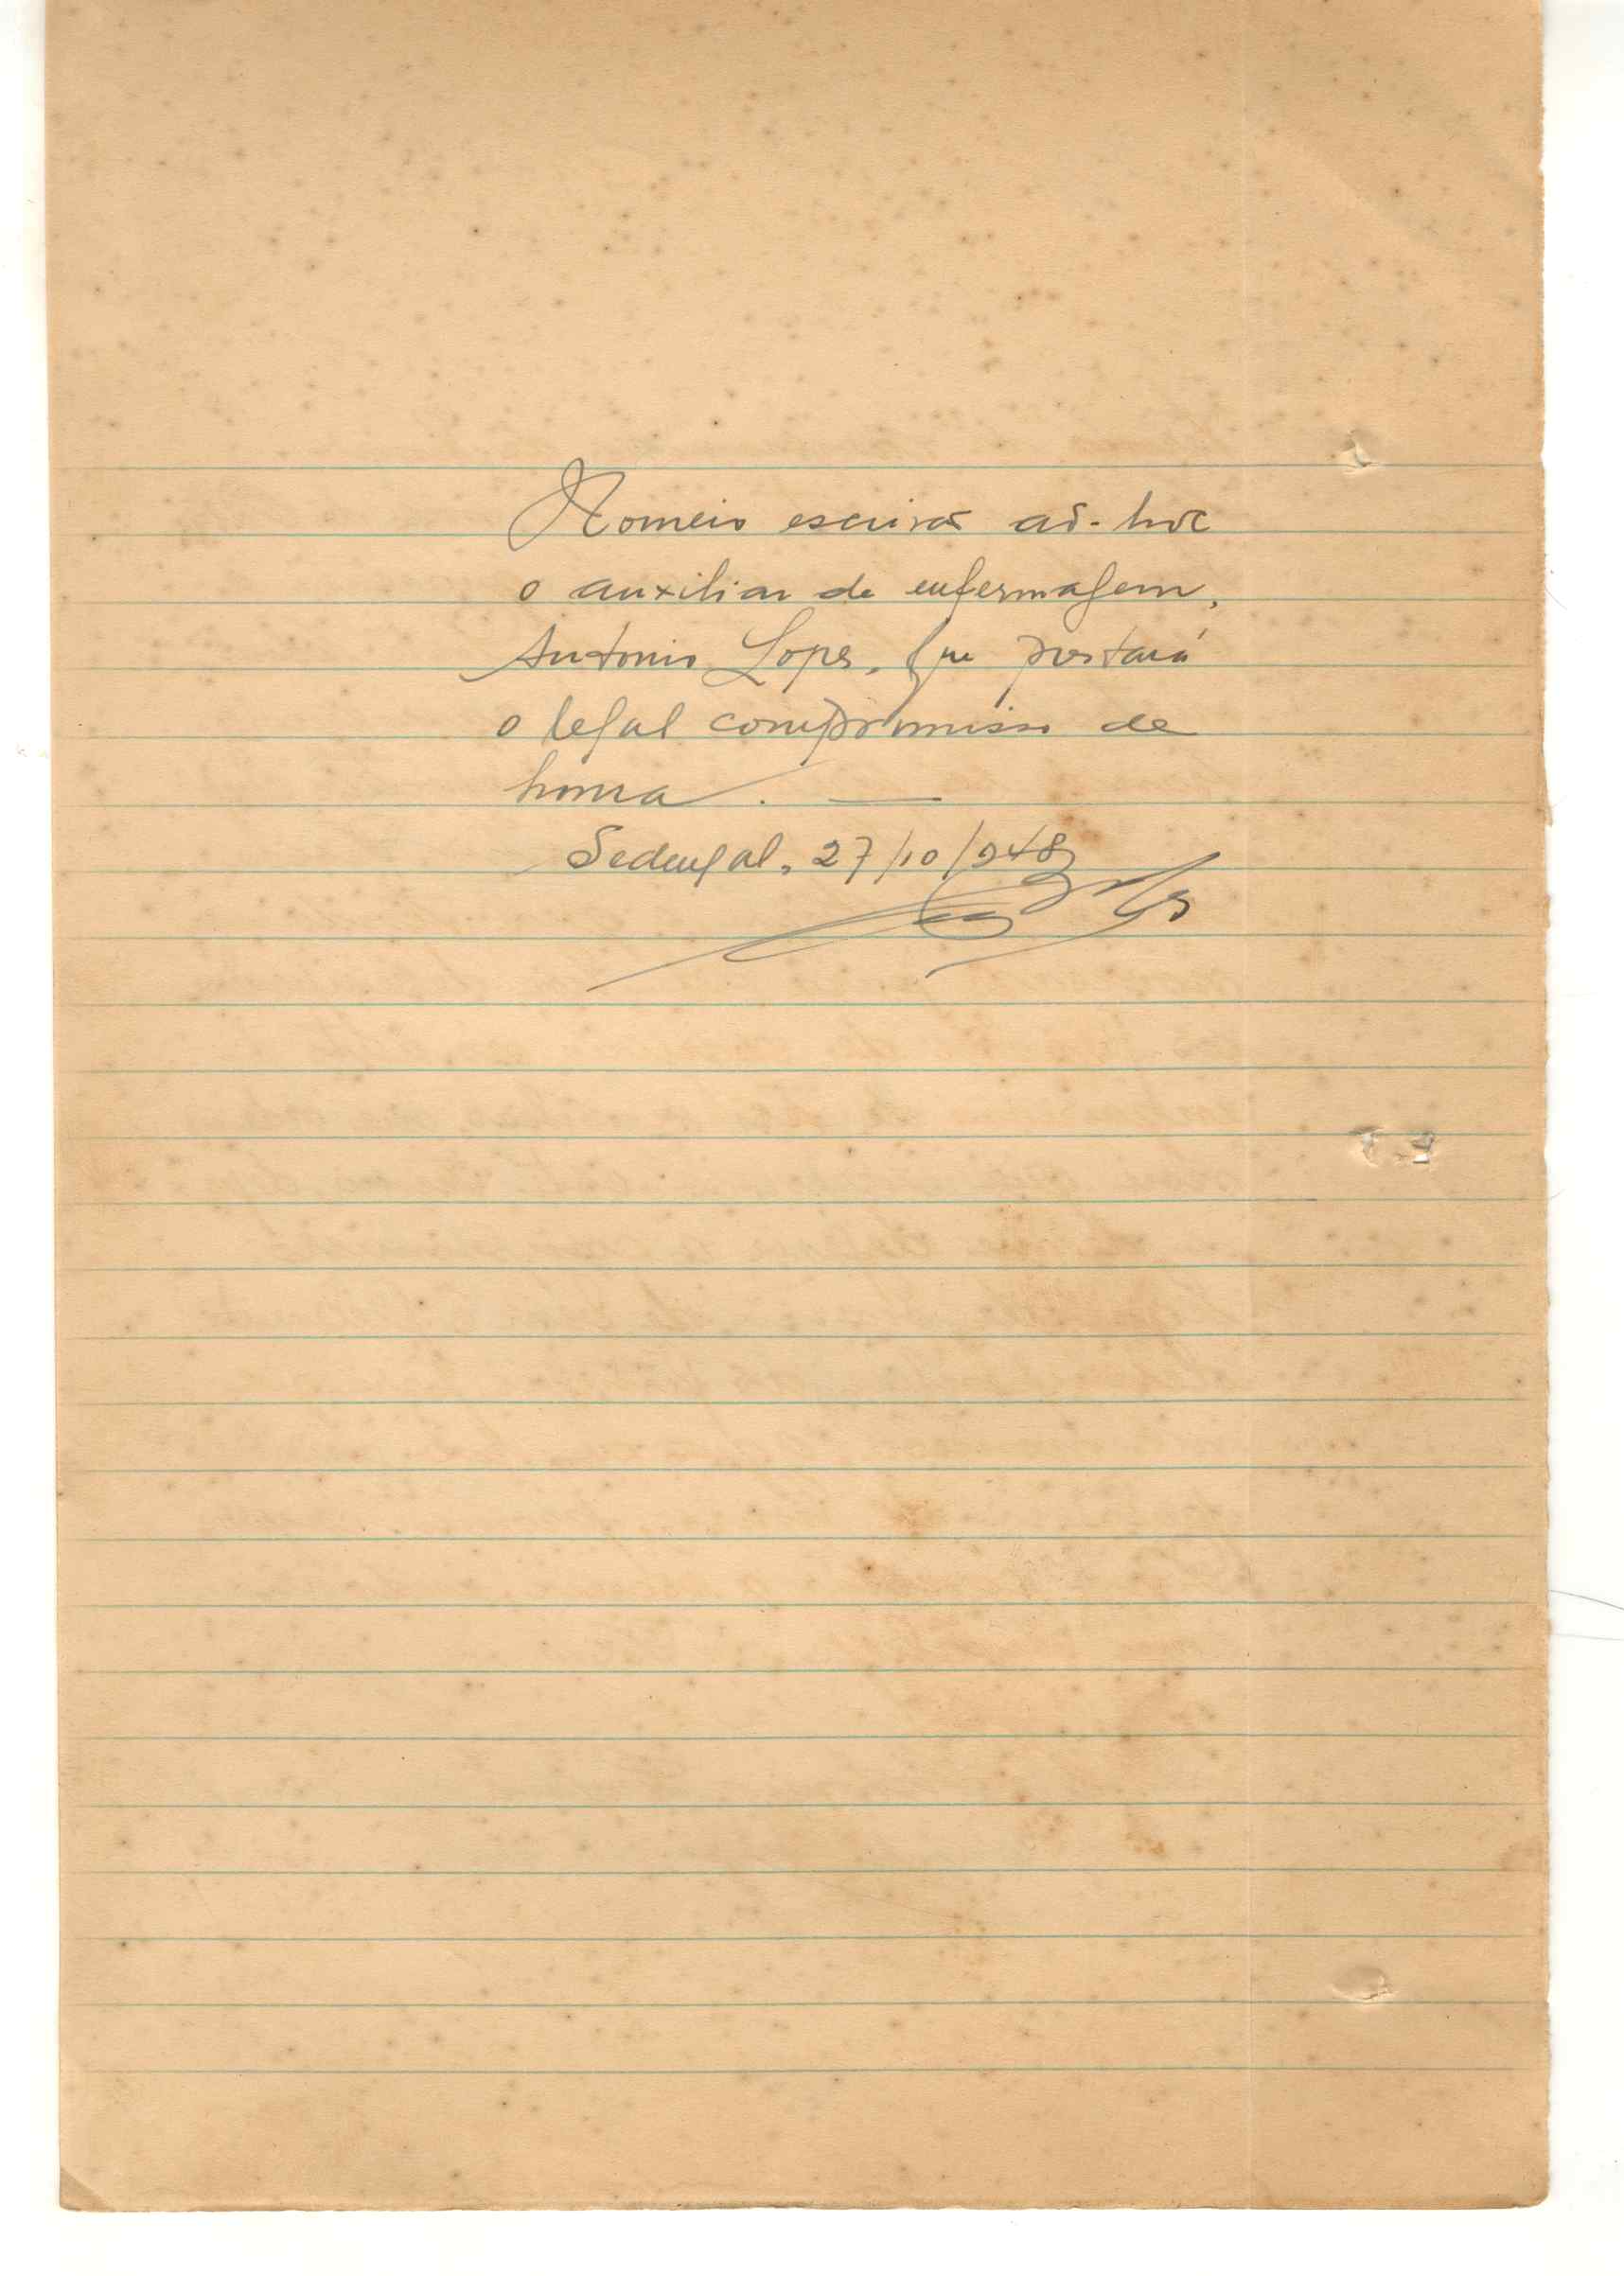 Nomeio escrivão ad-hoc
o auxiliar de enfermagem,
Antonio Lopes, que prestará
o legal compromisso de
honra. —
27/10/948